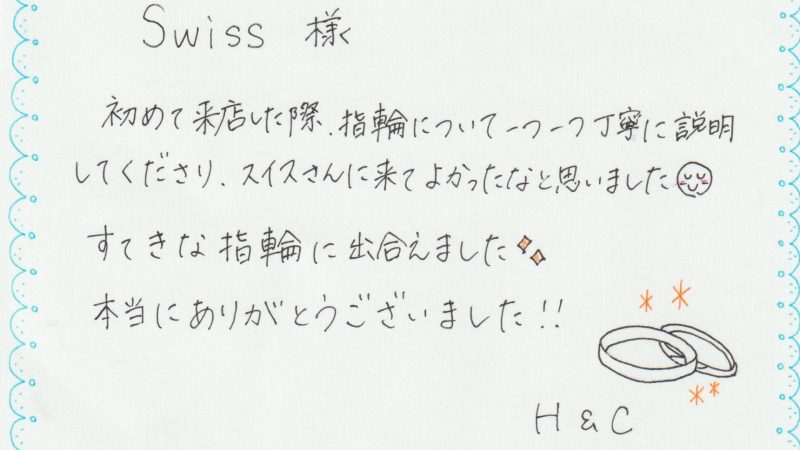 Swiss 様
初めて来店した際、指輪について一つ一つ丁寧に説明
してくださり、スイスさんに来てよかったなと思いました
すてきな指輪に出合えました
本当にありがとうございました!!
H & C